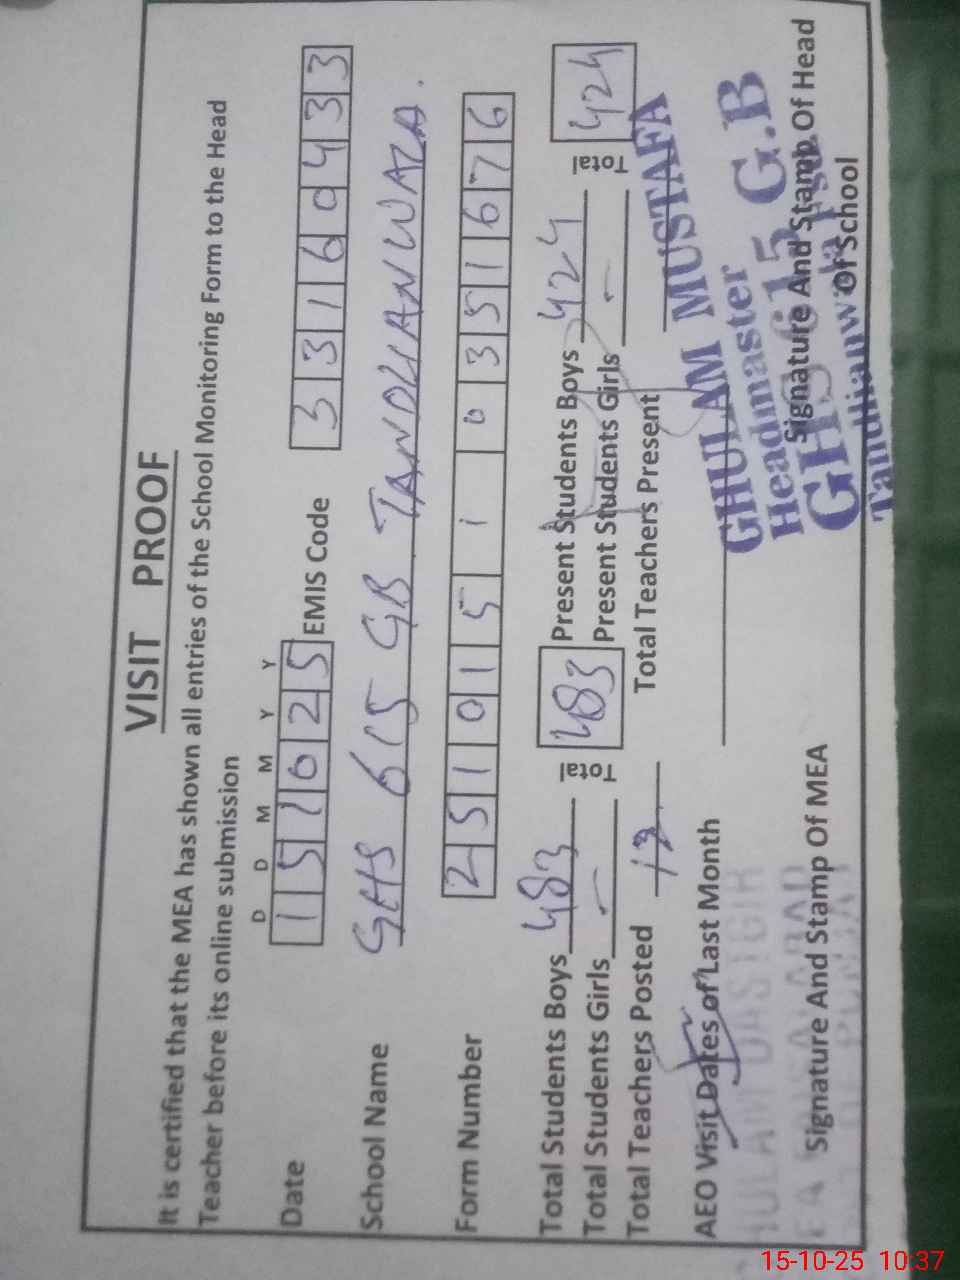 VISIT PROOF
It is certified that the MEA has shown all entries of the School Monitoring Form to the Head
Teacher before its online submission
D D M M Y Y
Date 1 5 1 0 2 5 EMIS Code 3 3 1 6 0 4 3 3
School Name GHS 615 GB TANDLIANWALA.
Form Number 2 5 1 0 1 5 1 0 3 5 1 6 7 6
Total Students Boys 483 Total 483 Present Students Boys 424 Total 424
Total Students Girls - Present Students Girls -
Total Teachers Posted 12 Total Teachers Present
AEO Visit Dates of Last Month
GHULAM MUSTAFA
Headmaster
GHS 615 G.B
Tandlianwala
Signature And Stamp Of MEA
Signature And Stamp Of Head
Of School
15-10-25 10:37